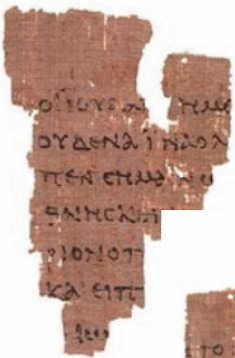 ΟΙ ΙΟΥΔΑΙ ΗΜΕ
ΟΥΔΕΝΑ ΙΝΑ ΟΛ
ΠΕΝ ΣΗΜΑΙΝΩ
ΘΝΗΣΚΕΙ
ΡΙΟΝ Ο Π
ΚΑΙ ΕΙΠ